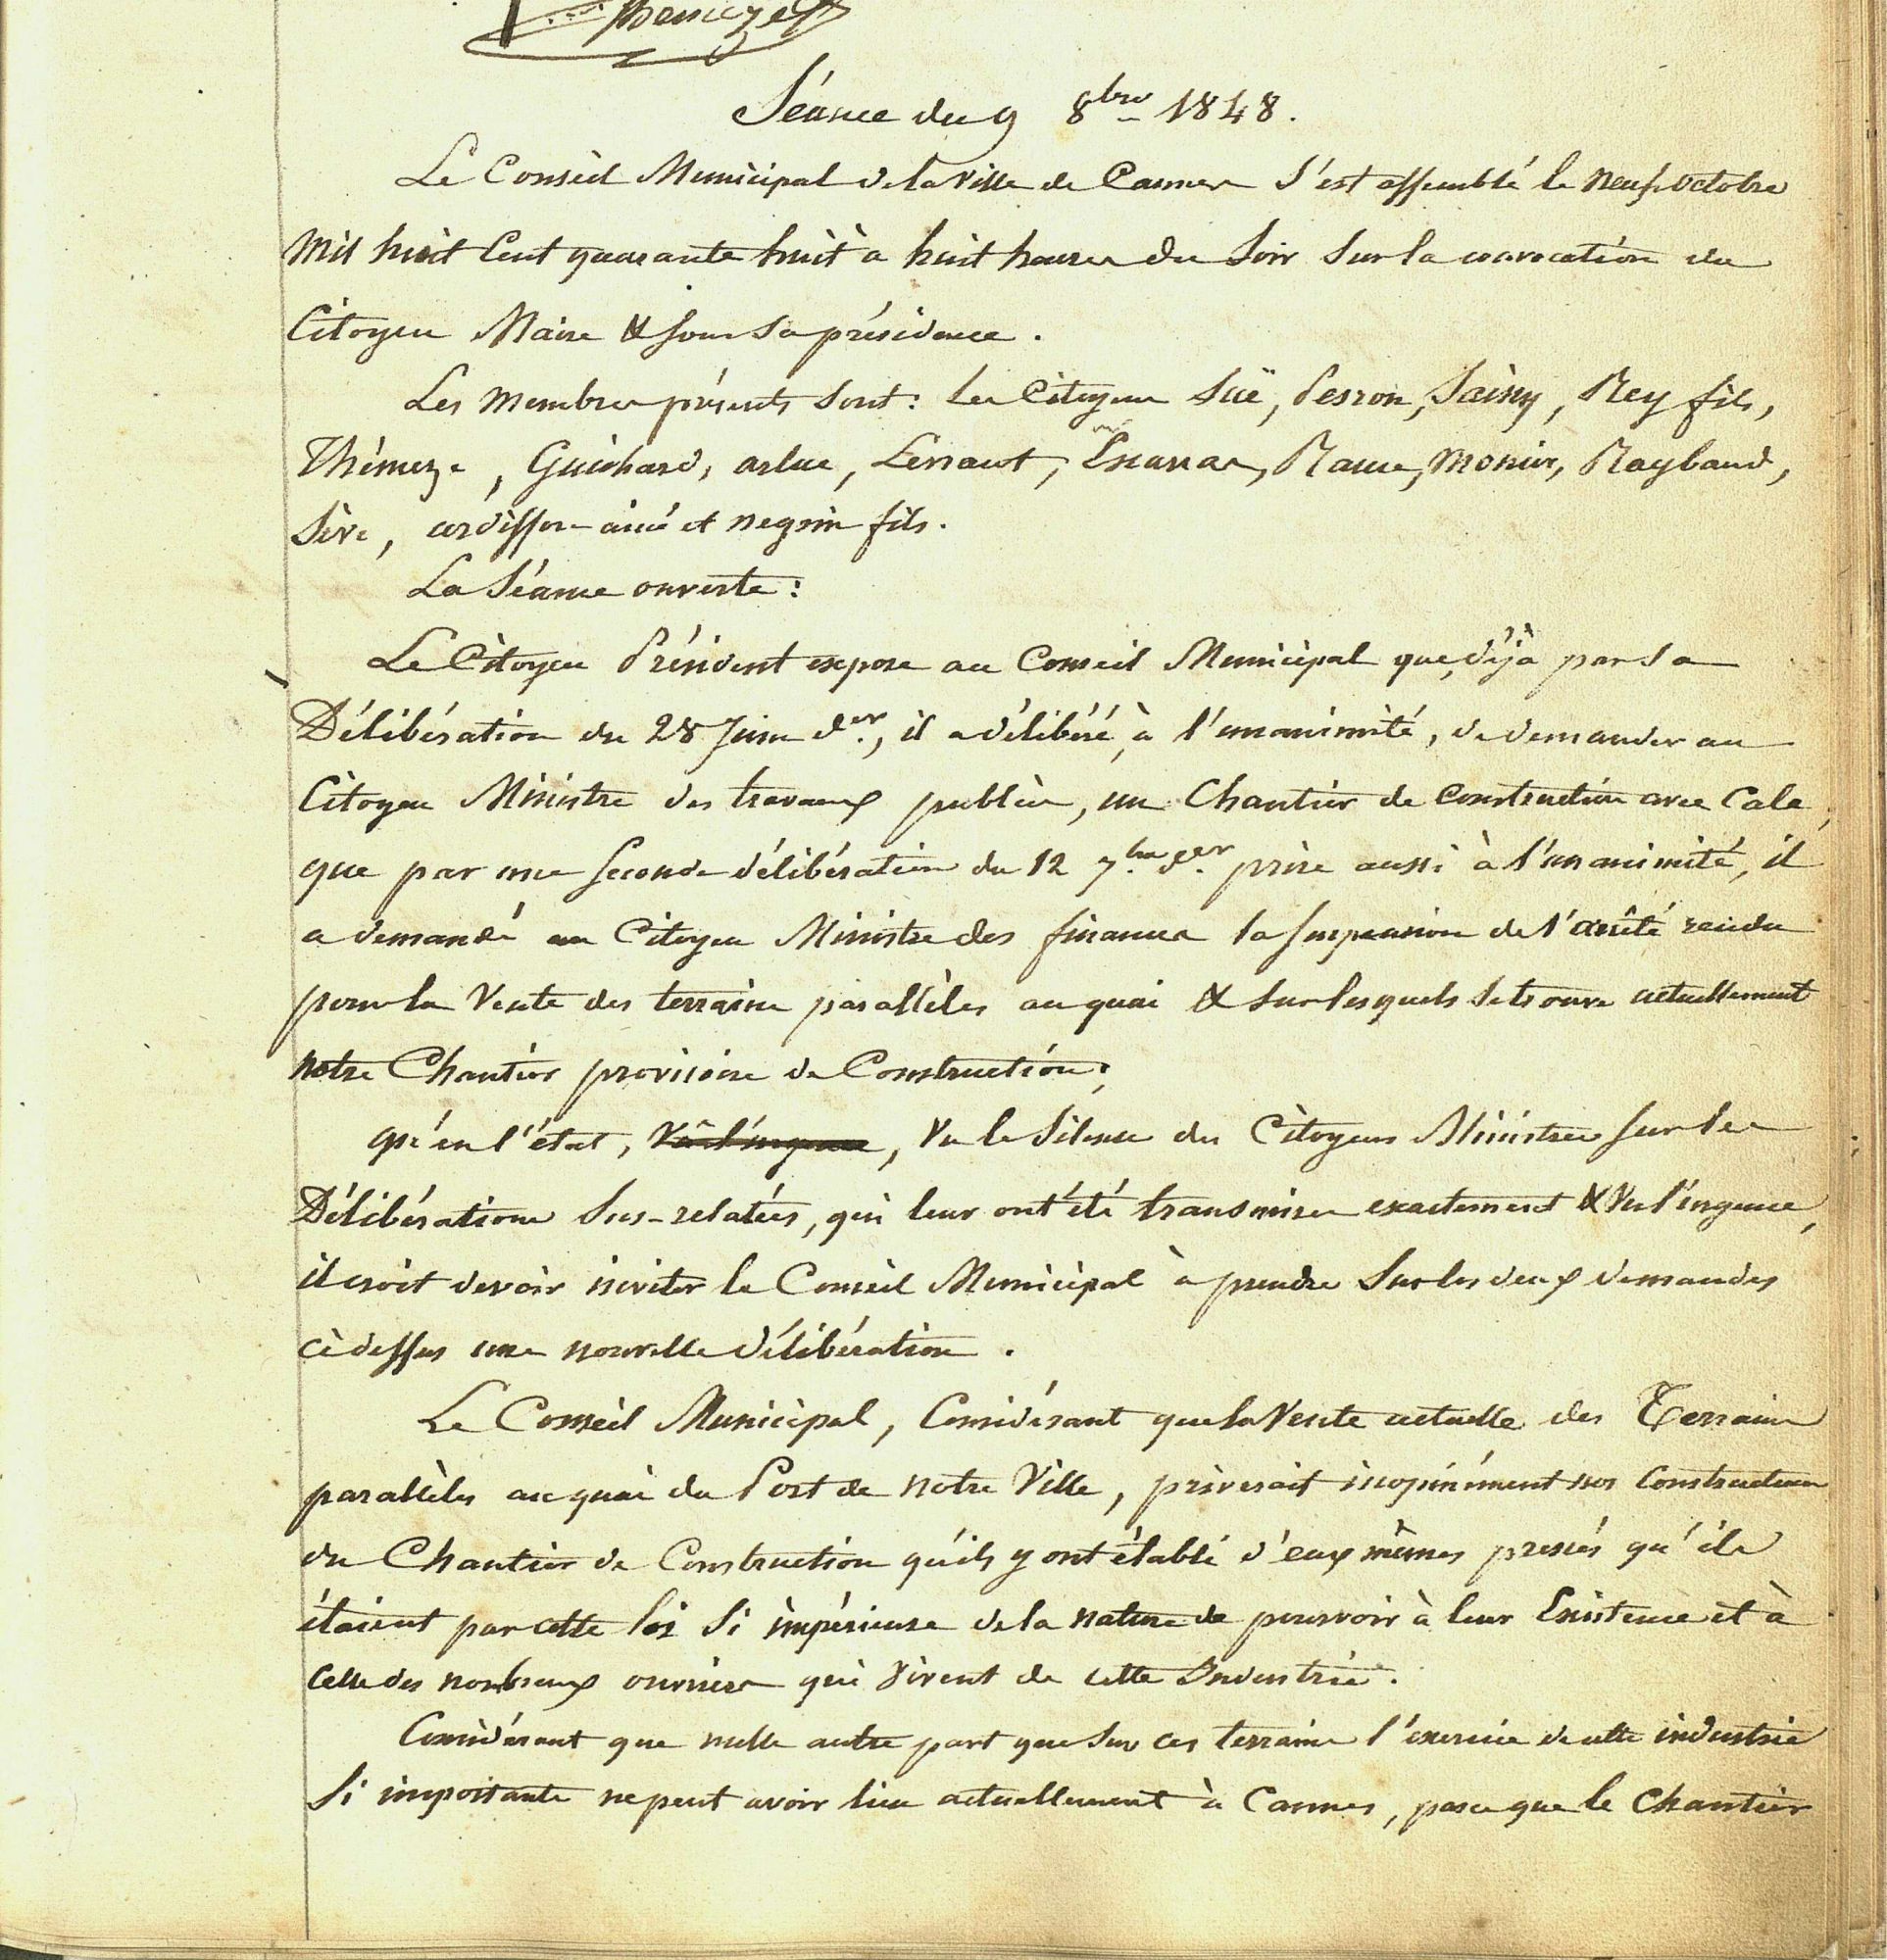 Séance du 9 8bre 1848.
Le Conseil Municipal de la Ville de Cannes s'est assemblé le neuf octobre
mil huit cent quarante huit à huit heures du soir sur la convocation du
Citoyen Maire & sous sa présidence.
Les membres présents sont: les Citoyens Süe, Perron, Sainy, Rey fils,
Thémèze, Guichard, arluc, Lenaut, Escarras, Rame, Monier, Raybaud,
Sève, ardisson aîné et negrin fils.
La Séance ouverte:
Le Citoyen Président expose au Conseil Municipal que, déjà par sa
Délibération du 28 Juin der, il a délibéré, à l'unanimité, de demander au
Citoyen Ministre des travaux publics, un Chantier de construction avec Cale,
que par une seconde délibération du 12 7bre der prise aussi à l'unanimité, il
a demandé au Citoyen Ministre des finances la suspension de l'arrêté rendu
pour la Vente des terrains parallèles au quai & sur lesquels se trouve actuellement
notre Chantier provisoire de Construction;
qu'en l'état, vu l'urgence, vu le silence des Citoyens Ministres sur les
Délibérations sus-relatées, qui leur ont été transmises exactement & vu l'urgence,
il croit devoir inviter le Conseil Municipal à prendre sur les deux demandes
ci dessus une nouvelle délibération.
Le Conseil Municipal, Considérant que la Vente actuelle des Terrains
parallèles au quai du Port de notre Ville, priverait inopinément nos Constructeurs
du Chantier de Construction qu'ils y ont établi d'eux mêmes pressés qu'ils
étaient par cette loi si impérieuse de la nature de pourvoir à leur Existence et à
celle des nombreux ouvriers qui vivent de cette Industrie.
Considérant que nulle autre part que sur ces terrains l'exercice de cette industrie
si importante ne peut avoir lieu actuellement à Cannes, parce que le Chantier